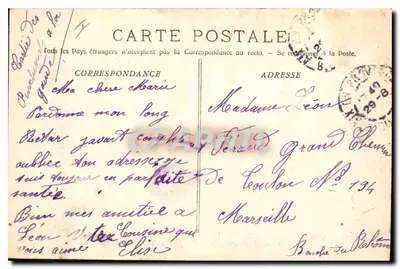 CARTE POSTALE
Tous les Pays étrangers n'acceptent pas la Correspondance au recto. — Se renseigner à la Poste.
CORRESPONDANCE
ADRESSE
Ma chere Marie
Pardonne mon long
Retar javait complet
oubliée ton adresse je
suis toujour en parfaite
santée
Bien mes amitiée a
Léon votre Cousine qui
vous aime Elise
Madame Léon
Grand Chemin
De Toulon Nº 194
Marseille
Bouche du Rhône